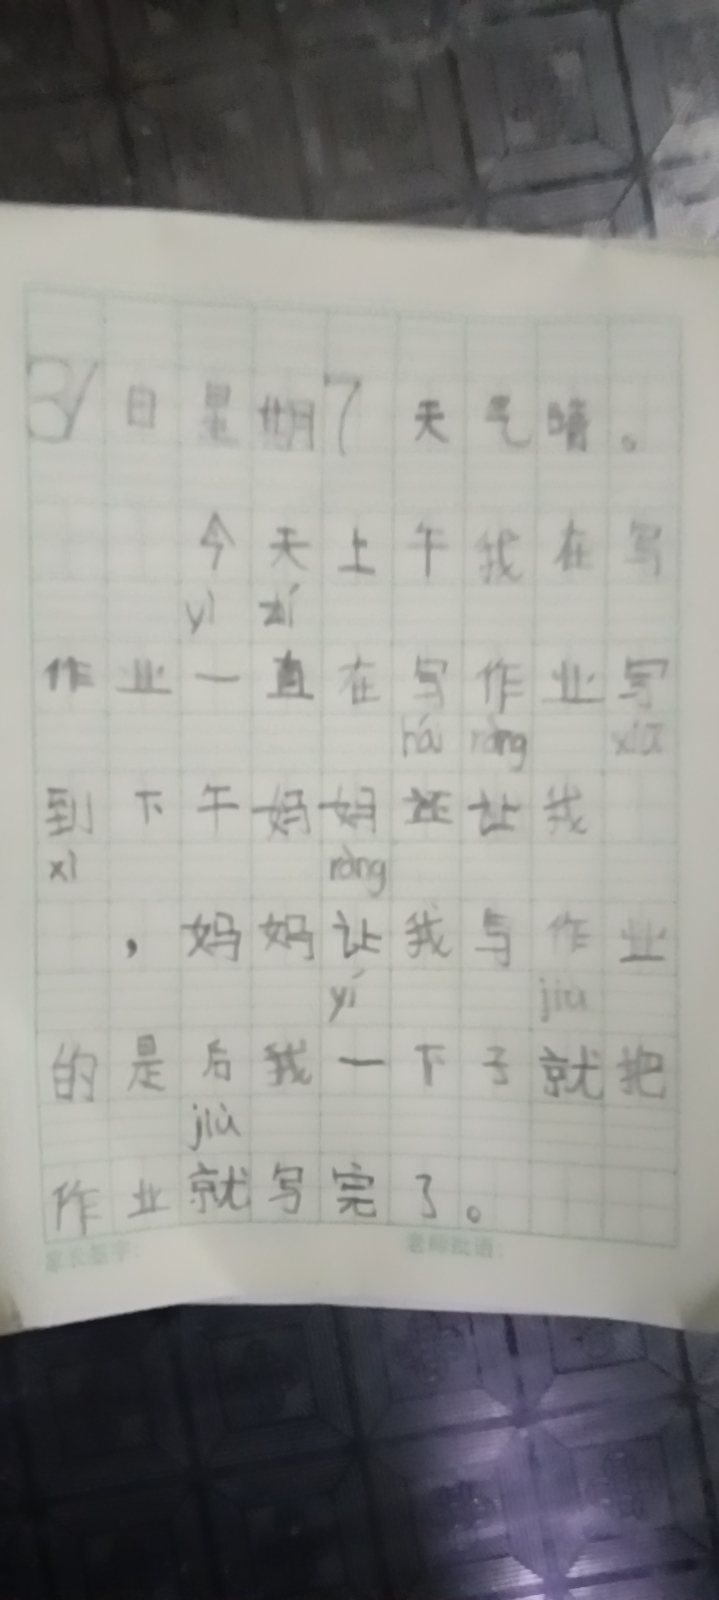 31日星期7天气晴。
今天上午我在写
yì zhí
作业一直在写作业写
hái ràng xiū
到下午妈妈还让我
xì ràng
，妈妈让我写作业
yí jiù
的是后我一下子就把
jiù
作业就写完了。
家长签字：老师批语：